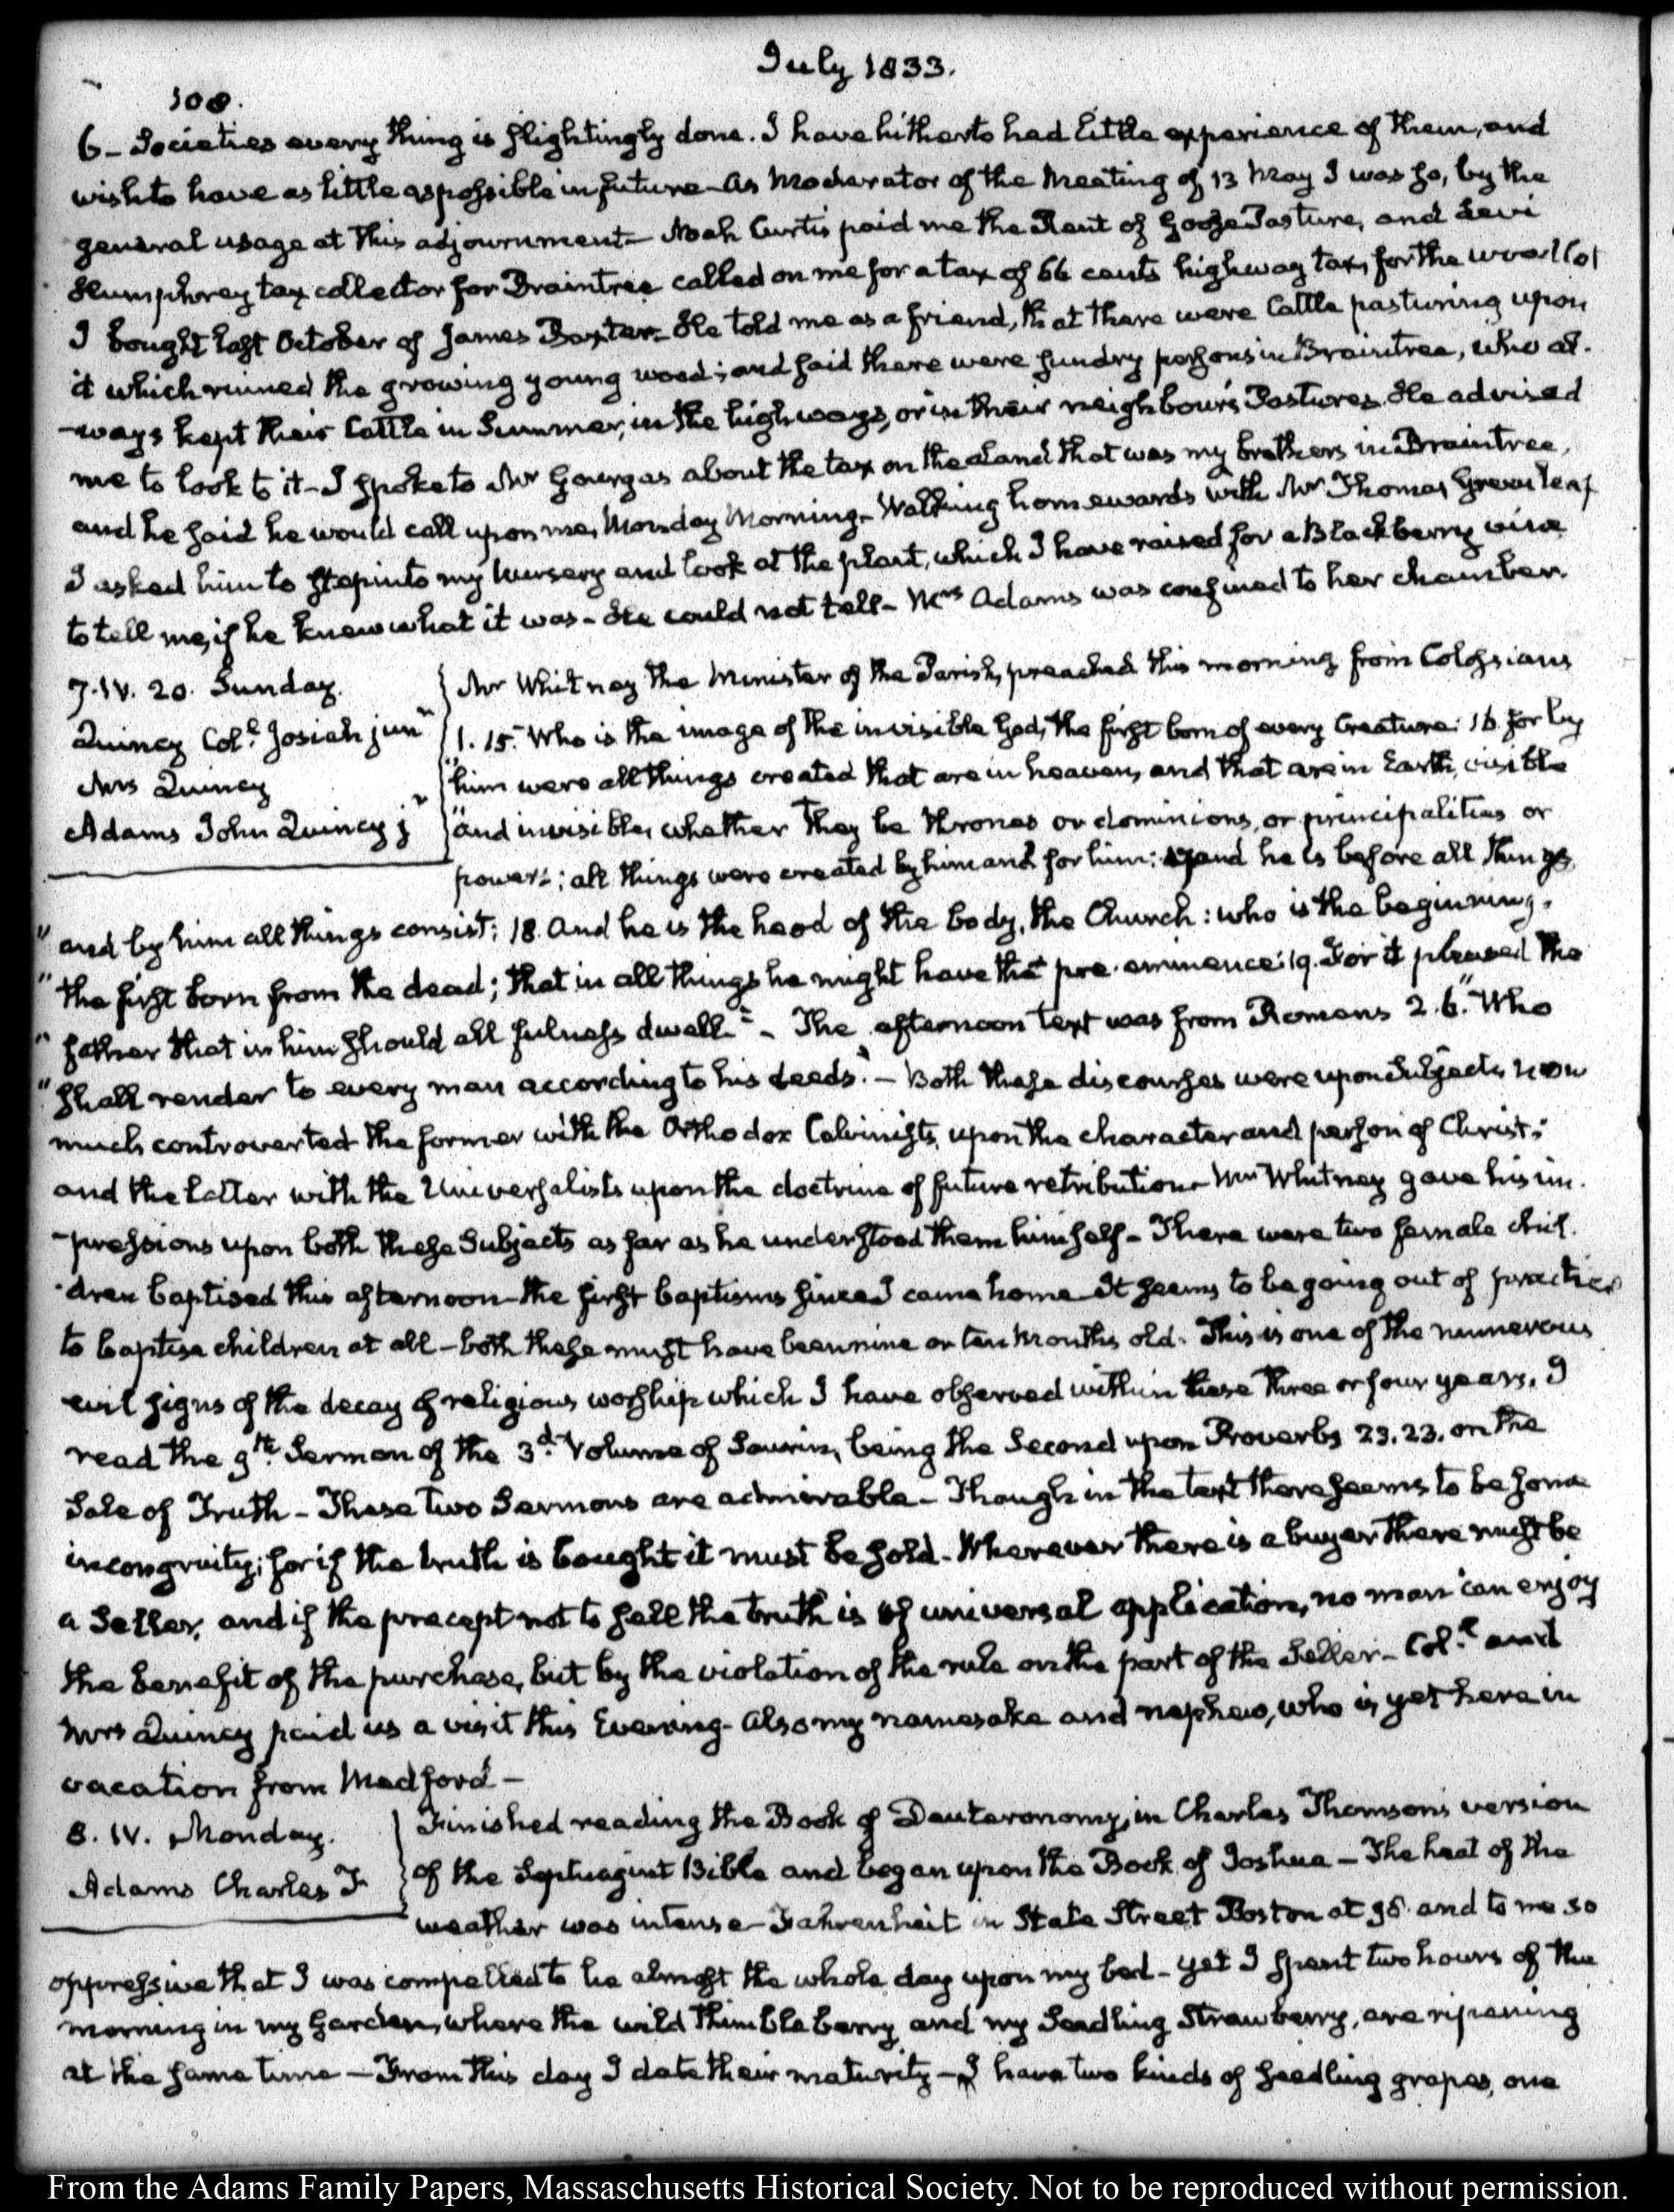 July 1833.
108.
6 – Societies every thing is slightingly done. I have hitherto had little experience of them, and
wish to have as little as possible in future – As Moderator of the Meeting of 13 May I was so, by the
general usage at this adjournment – Noah Curtis paid me the Rent of Goose Pasture, and Levi
Humphrey tax collector for Braintree called on me for a tax of 66 cents highway tax, for the wood lot
I bought last October of James Baxter – He told me as a friend, that there were Cattle pasturing upon
it which ruined the growing young wood; and said there were sundry persons in Braintree, who al-
-ways kept their Cattle in Summer, in the highways, or in their neighbour's Pastures. He advised
me to look to it – I spoke to Mr Gourgas about the tax on the Land that was my brother's in Braintree,
and he said he would call upon me, Monday Morning – Walking homewards with Mr Thomas Greenleaf
I asked him to step into my Nursery and look at the plant, which I have raised for a Blackberry vine
to tell me, if he knew what it was – He could not tell – Mrs Adams was confined to her chamber.
7. IV. 20. Sunday.
Quincy Col.l Josiah junr
Mrs Quincy
Adams John Quincy jr
Mr Whitney the Minister of the Parish, preached this morning from Colossians
1. 15. "Who is the image of the invisible God, the first born of every Creature: 16 for by
"him were all things created that are in heaven, and that are in Earth, visible
"and invisible, whether they be thrones or dominions, or principalities or
powers; all things were created by him and for him: 17 and he is before all things,
" and by him all things consist; 18. And he is the head of the body, the Church: who is the beginning,
" the first born from the dead; that in all things he might have the pre-eminence: 19. For it pleased the
" father that in him should all fulness dwell" – The afternoon text was from Romans 2. 6. "Who
" shall render to every man according to his deeds." – Both these discourses were upon Subjects now
much controverted the former with the Orthodox Calvinists, upon the character and person of Christ;
and the latter with the Universalists upon the doctrine of future retribution – Mr Whitney gave his im-
-pressions upon both these Subjects as far as he understood them himself – There were two female chil-
-dren baptised this afternoon – the first baptisms since I came home – It seems to be going out of practice
to baptise children at all – both these must have been nine or ten Months old. This is one of the numerous
evil signs of the decay of religious worship which I have observed within these three or four years. I
read the 9th Sermon of the 3d Volume of Saurin, being the Second upon Proverbs 23. 23. on the
Sale of Truth – These two Sermons are admirable – Though in the text there seems to be some
incongruity; for if the truth is bought it must be sold. Wherever there is a buyer there must be
a Seller, and if the precept not to sell the truth is of universal application, no man can enjoy
the benefit of the purchase, but by the violation of the rule on the part of the Seller – Col.l and
Mrs Quincy paid us a visit this Evening – Also my namesake and nephew, who is yet here in
vacation from Medford –
8. IV. Monday.
Adams Charles F.
Finished reading the Book of Deuteronomy, in Charles Thomson's version
of the Septuagint Bible and began upon the Book of Joshua – The heat of the
weather was intense – Fahrenheit in State Street Boston at 98. and to me so
oppressive that I was compelled to lie almost the whole day upon my bed – yet I spent two hours of the
morning in my Garden, where the wild Thimbleberry and my Seedling Strawberry, are ripening
at the same time – From this day I date their maturity – I have two kinds of seedling grapes, one
From the Adams Family Papers, Massachusetts Historical Society. Not to be reproduced without permission.